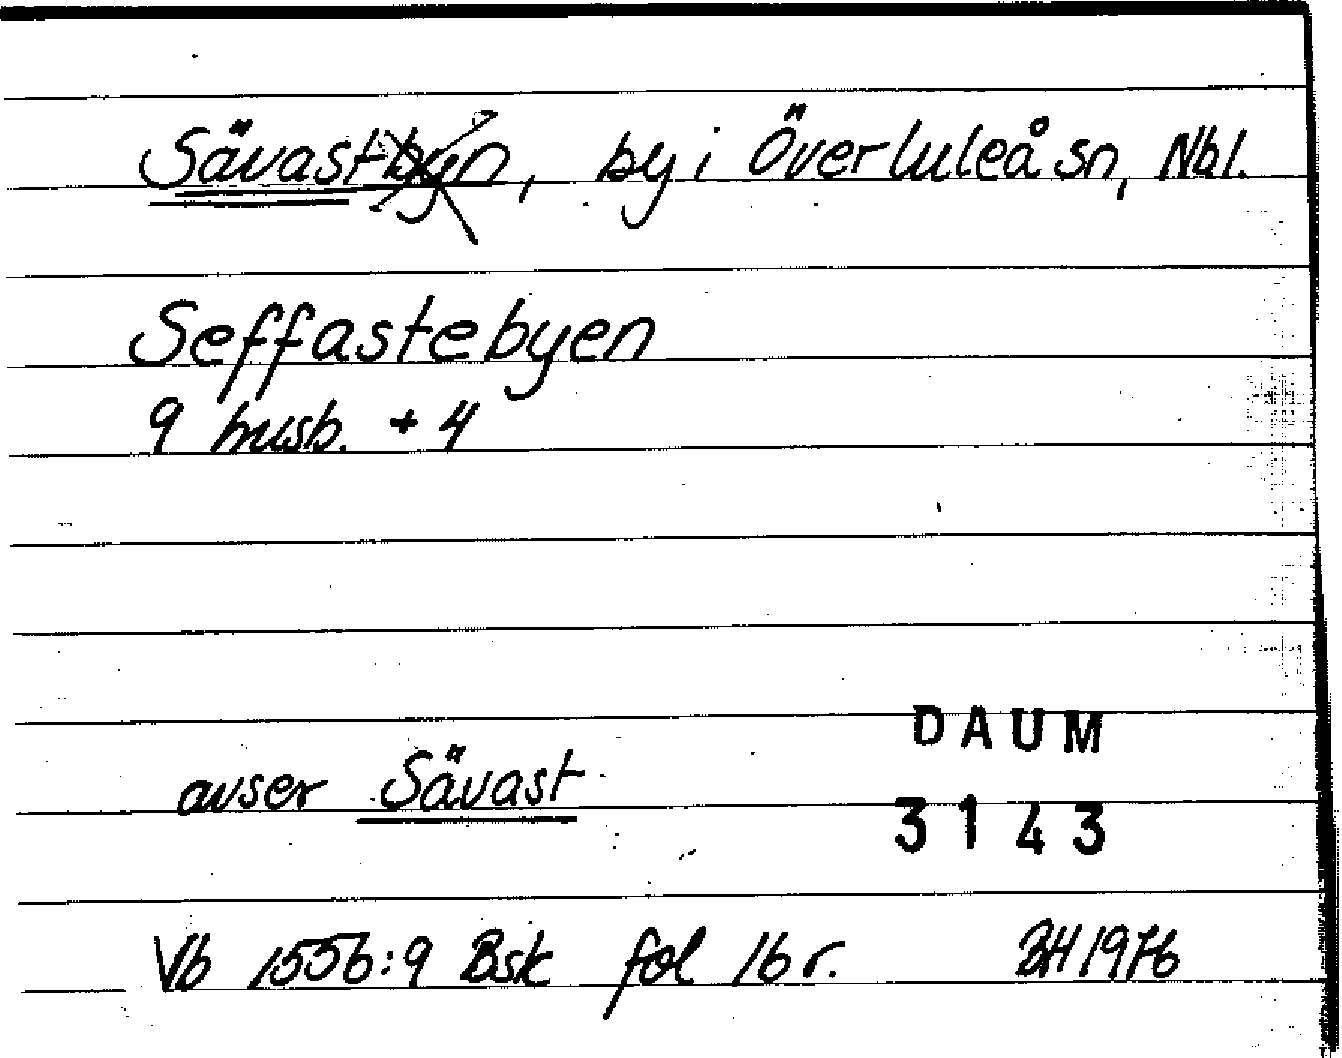 Sävastbyn, by i Överluleå sn, Nbl.
Seffastebyen
9 husb. + 4
DAUM
avser Sävast
3143
Vb 1556:9 Bsk fol 16 r. BH 1976